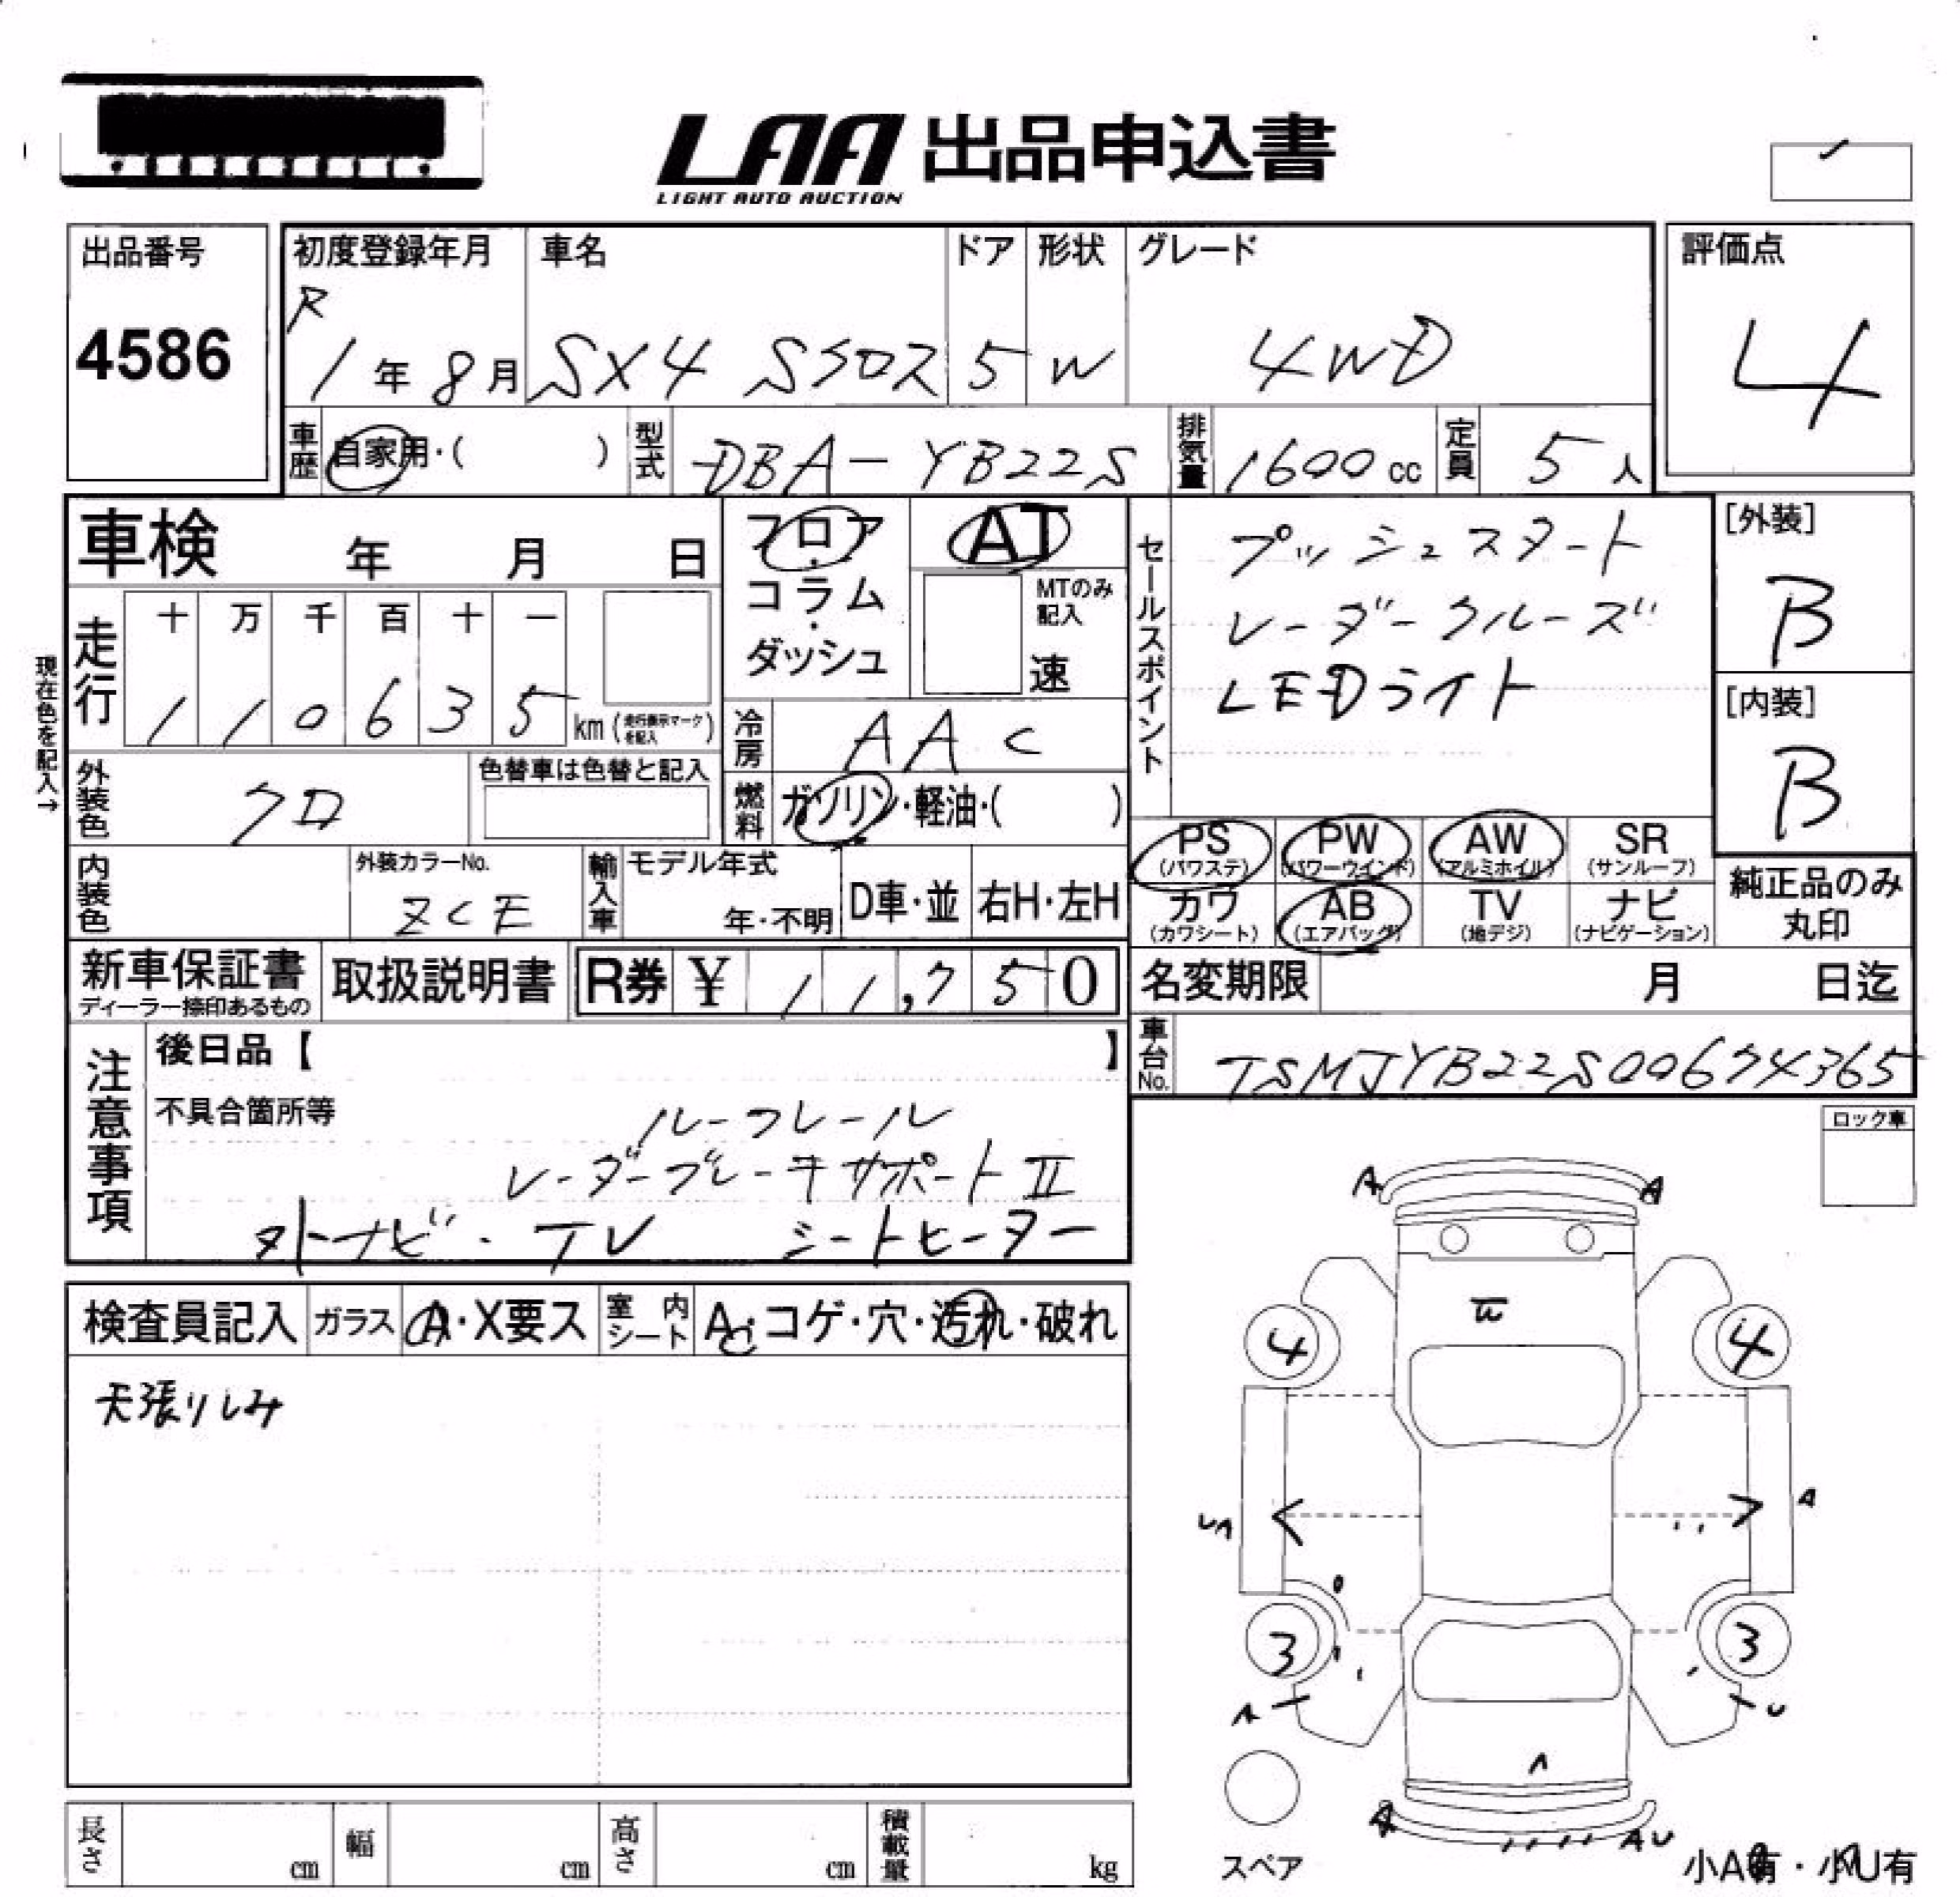 LAA 出品申込書
LIGHT AUTO AUCTION
出品番号
4586
初度登録年月
R
1年 8月
車名
SX4 Sクロス
ドア
5
形状
W
グレード
4WD
評価点
4
車歴
自家用・( )
型式
DBA-YB22S
排気量
1600cc
定員
5人
車検 年 月 日
フロア・コラム・ダッシュ
AT
MTのみ記入
速
セールスポイント
プッシュスタート
レーダークルーズ
LEDライト
[外装]
B
[内装]
B
現在色を記入→
走行
十 万 千 百 十 一
1 1 0 6 3 5 km (走行表示マークを記入)
冷房
AAC
外装色
クロ
色替車は色替と記入
燃料
ガソリン・軽油・( )
PS (パワステ)
PW (パワーウインド)
AW (アルミホイル)
SR (サンルーフ)
カワ (カワシート)
AB (エアバッグ)
TV (地デジ)
ナビ (ナビゲーション)
純正品のみ
丸印
内装色
外装カラーNo.
ZCE
輸入車
モデル年式
年・不明
D車・並
右H・左H
新車保証書
ディーラー捺印あるもの
取扱説明書
R券 ¥ 11,750
名変期限 月 日迄
車台No.
TSMJYB22S00674365
注意事項
後日品【 】
不具合箇所等
ルーフレール
レーダーブレーキサポートII
外ナビ・TV シートヒーター
ロック車
検査員記入
ガラス
A・X要ス
室内シート
A・コゲ・穴・汚れ・破れ
天張りしみ
A A
W
4 4
UA A
3 3
A U
A
A AU
スペア
小A有・小U有
長さ cm
幅 cm
高さ cm
積載量 kg